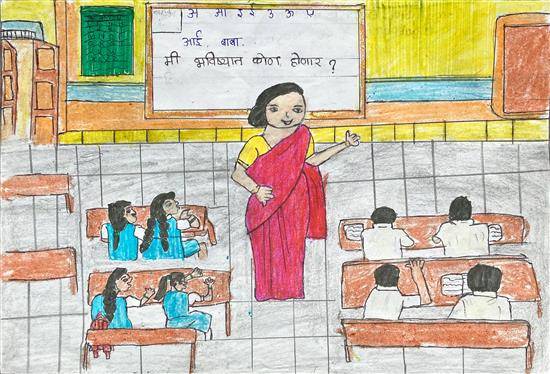 अ आ इ ई उ ऊ ए
आई. बाबा.
मी भविष्यात कोण होणार ?